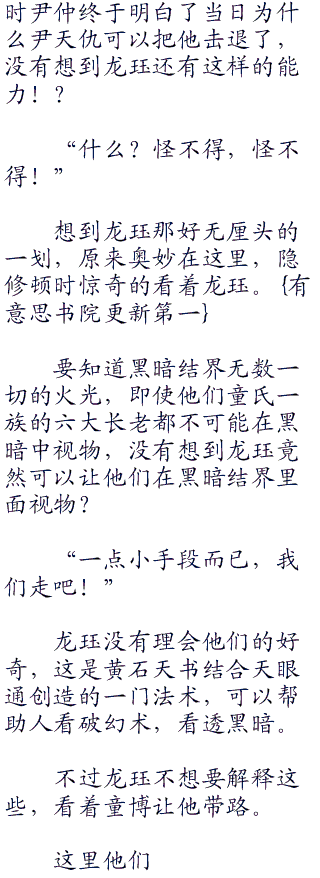 时尹仲终于明白了当日为什
么尹天仇可以把他击退了，
没有想到龙珏还有这样的能
力！？
“什么？怪不得，怪不
得！”
想到龙珏那好无厘头的
一划，原来奥妙在这里，隐
修顿时惊奇的看着龙珏。{有
意思书院更新第一}
要知道黑暗结界无数一
切的火光，即使他们童氏一
族的六大长老都不可能在黑
暗中视物，没有想到龙珏竟
然可以让他们在黑暗结界里
面视物？
“一点小手段而已，我
们走吧！”
龙珏没有理会他们的好
奇，这是黄石天书结合天眼
通创造的一门法术，可以帮
助人看破幻术，看透黑暗。
不过龙珏不想要解释这
些，看着童博让他带路。
这里他们